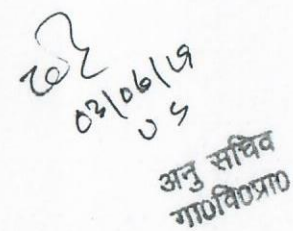 03/06/19
US
अनु सचिव
गा०वि०प्रा०